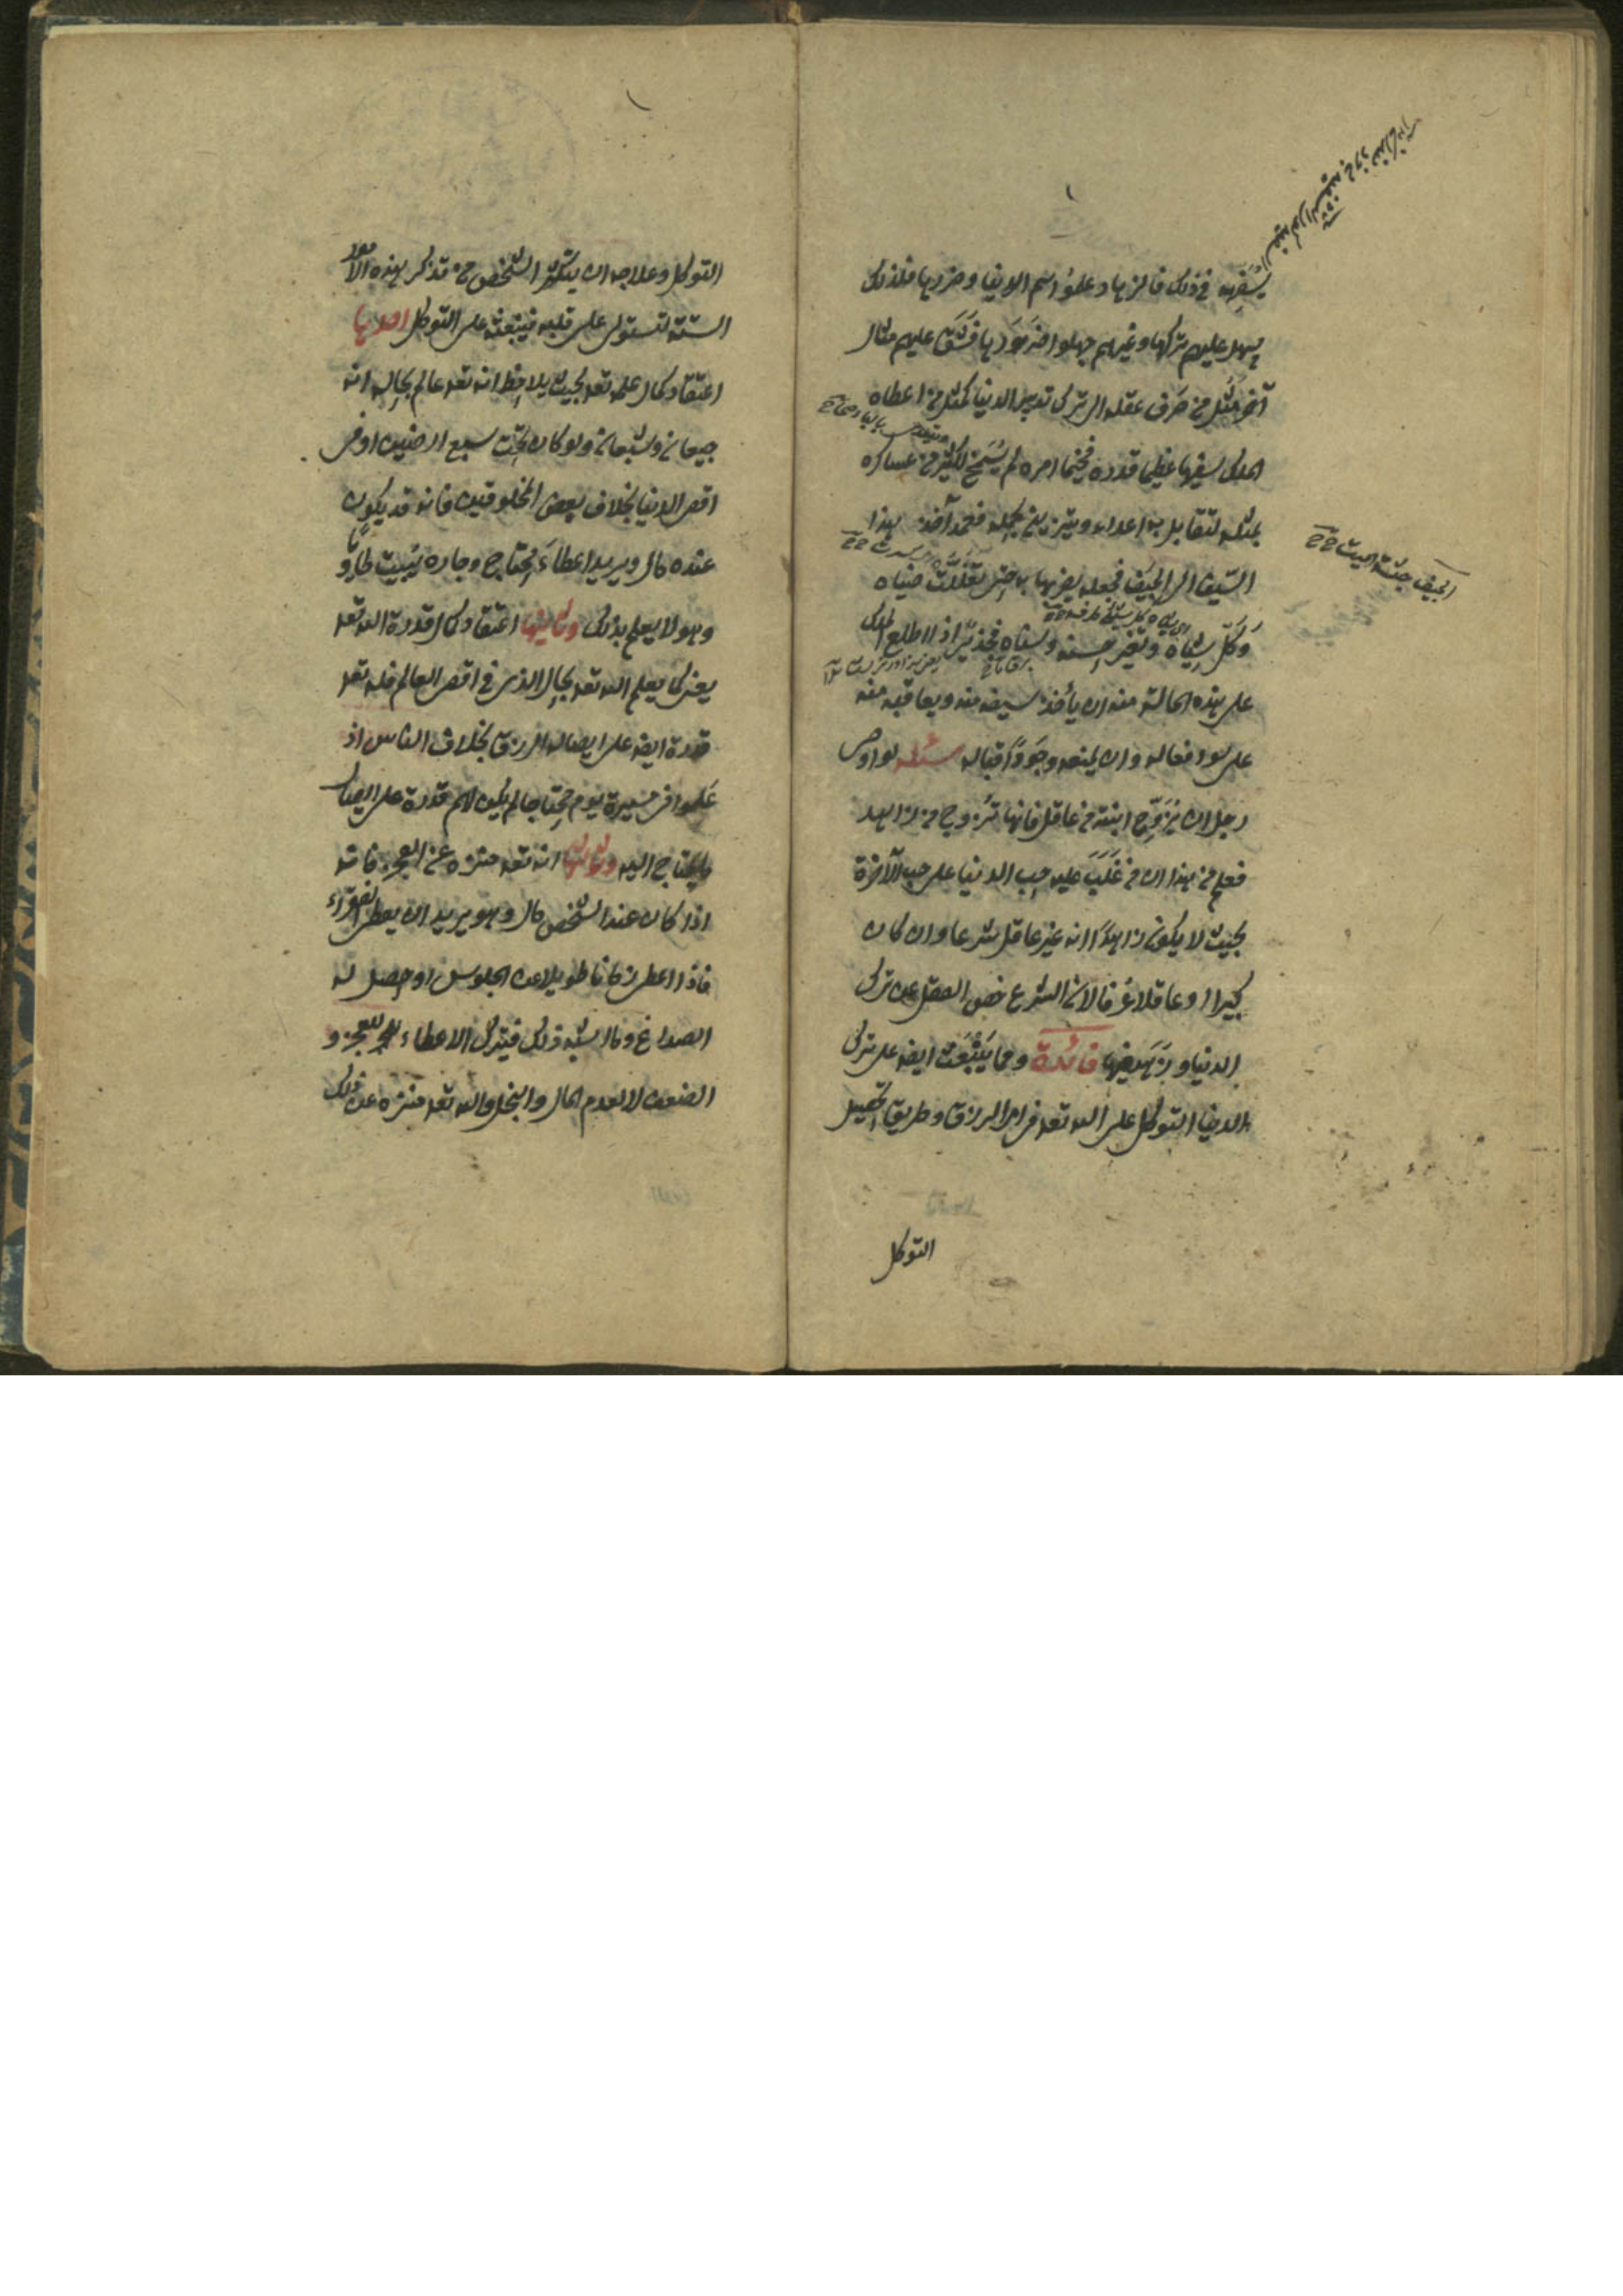 يسفهه في ذلك فالزهاد علموا اسم الدنيا وضررها فلذلك
يسهل عليهم تركها وغيرهم جهلوا ضررها فشق عليهم مثال
آخر مثل من صرف عقله الى ترك تدبير الدنيا كمثل من اعطاه
الملك سيفا عظيما قدره فخيما امره لم يسمح لكثير من عساكره
بمثله لتقابل به اعداء ويتزين بجمله فعمد آخذ هذا
السيف الى الجيف فجعله يضربها به حتى تفللت ضباه
وكل شباه وتغير حسنه وسناه فجدير اذا اطلع الملك
على هذه الحالة منه ان يأخذ سيفه منه ويعاقبه
على سوء فعاله وان يمنعه وجود اقباله مسئلة لو اوصى
رجل ان يزوج ابنته من عاقل فانها تزوج من زاهد
فعلم من هذا ان من غلب عليه حب الدنيا على حب الآخرة
بحيث لا يكون زاهدا انه غير عاقل شرعا وان كان
كبيرا او عاقلا عرفا لان الشرع خص العقل بمن ترك
الدنيا وزهد فيها فائدة ومما يبعث ايضا على ترك
الدنيا التوكل على الله تعه في امر الرزق وطريق تحصيل
الجيف جثة الميت
التوكل
التوكل وعلاجه ان يستكثر الشخص من تذكر هذه الامور
الستة لتستولى على قلبه فيبعثه على التوكل احدها
اعتقاد كمال علمه تعه بحيث يلاحظ انه تعه عالم بحاله انه
جيعان وشبعان ولو كان تحت سبع ارضين او في
اقصى الدنيا بخلاف بعض المخلوقين فانه قد يكون
عنده مال ويريد اعطاء المحتاج وجاره يبيت طاويا
وهو لا يعلم بذلك وثانيها اعتقاد كمال قدرة الله تعه
يعنى كما يعلم الله تعه بحال الذى في اقصى العالم فله تعه
قدرة ايضا على ايصاله الرزق بخلاف الناس اذ
علموا في مسيرة يوم محتاجا لم يكن لهم قدرة على ايصال
ما يحتاج اليه وثالثها انه تعه منزه عن العجز فانه
اذا كان عند الشخص مال وهو يريد ان يعطى الفقراء
فاذا اعطى زمانا طويلا عن الجلوس او حصل له
الصداع وما اشبه ذلك فيترك الاعطاء للعجز و
الضعف لا لعدم المال والبخل والله تعه منزه عن ذلك